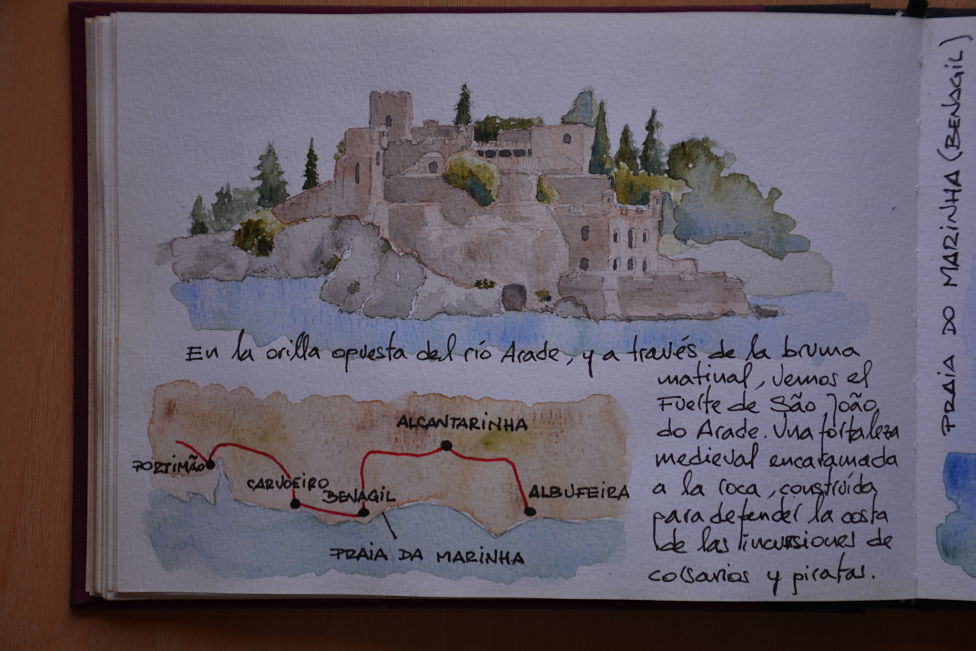 En la orilla opuesta del río Arade, y a través de la bruma
matinal, vemos el
Fuerte de São João
do Arade. Una fortaleza
medieval encaramada
a la roca, construida
para defender la costa
de las incursiones de
corsarios y piratas.
PORTIMÃO
CARVOEIRO
BENAGIL
ALCANTARINHA
ALBUFEIRA
PRAIA DA MARINHA
PRAIA DO MARINHA (BENAGIL)